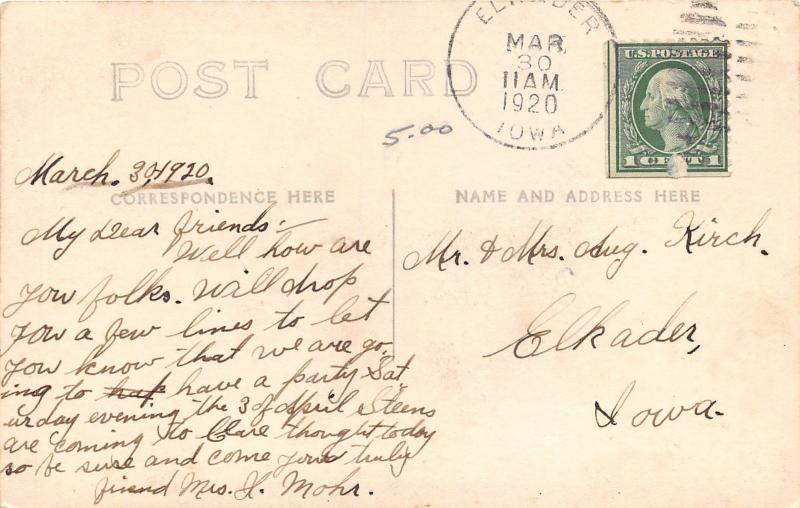 POST CARD
ELKADER
MAR
30
11 AM
1920
IOWA
U.S. POSTAGE
1 CENT 1
5.00
March. 30, 1920.
CORRESPONDENCE HERE
My Dear friends:—
Well how are
you folks. Will drop
you a few lines to let
you know that we are go-
ing to have a party Sat
urday evening the 3 of April Steens
are coming to Clare thought today
so be sure and come your truly
friend Mrs. H. Mohr.
NAME AND ADDRESS HERE
Mr. & Mrs. Aug. Kirch.
Elkader,
Iowa.